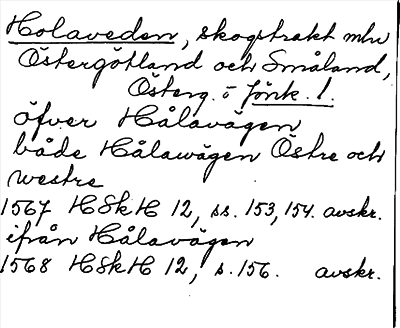 Holaveden, skogstrakt mln
Östergötland och Småland,
Österg. o Jönk. l.
öfver Hålavägen
både Hålawägen Östre och
westre
1567 HSkH 12, ss. 153, 154. avskr.
ifrån Hålavägen
1568 HSkH 12, s. 156. avskr.